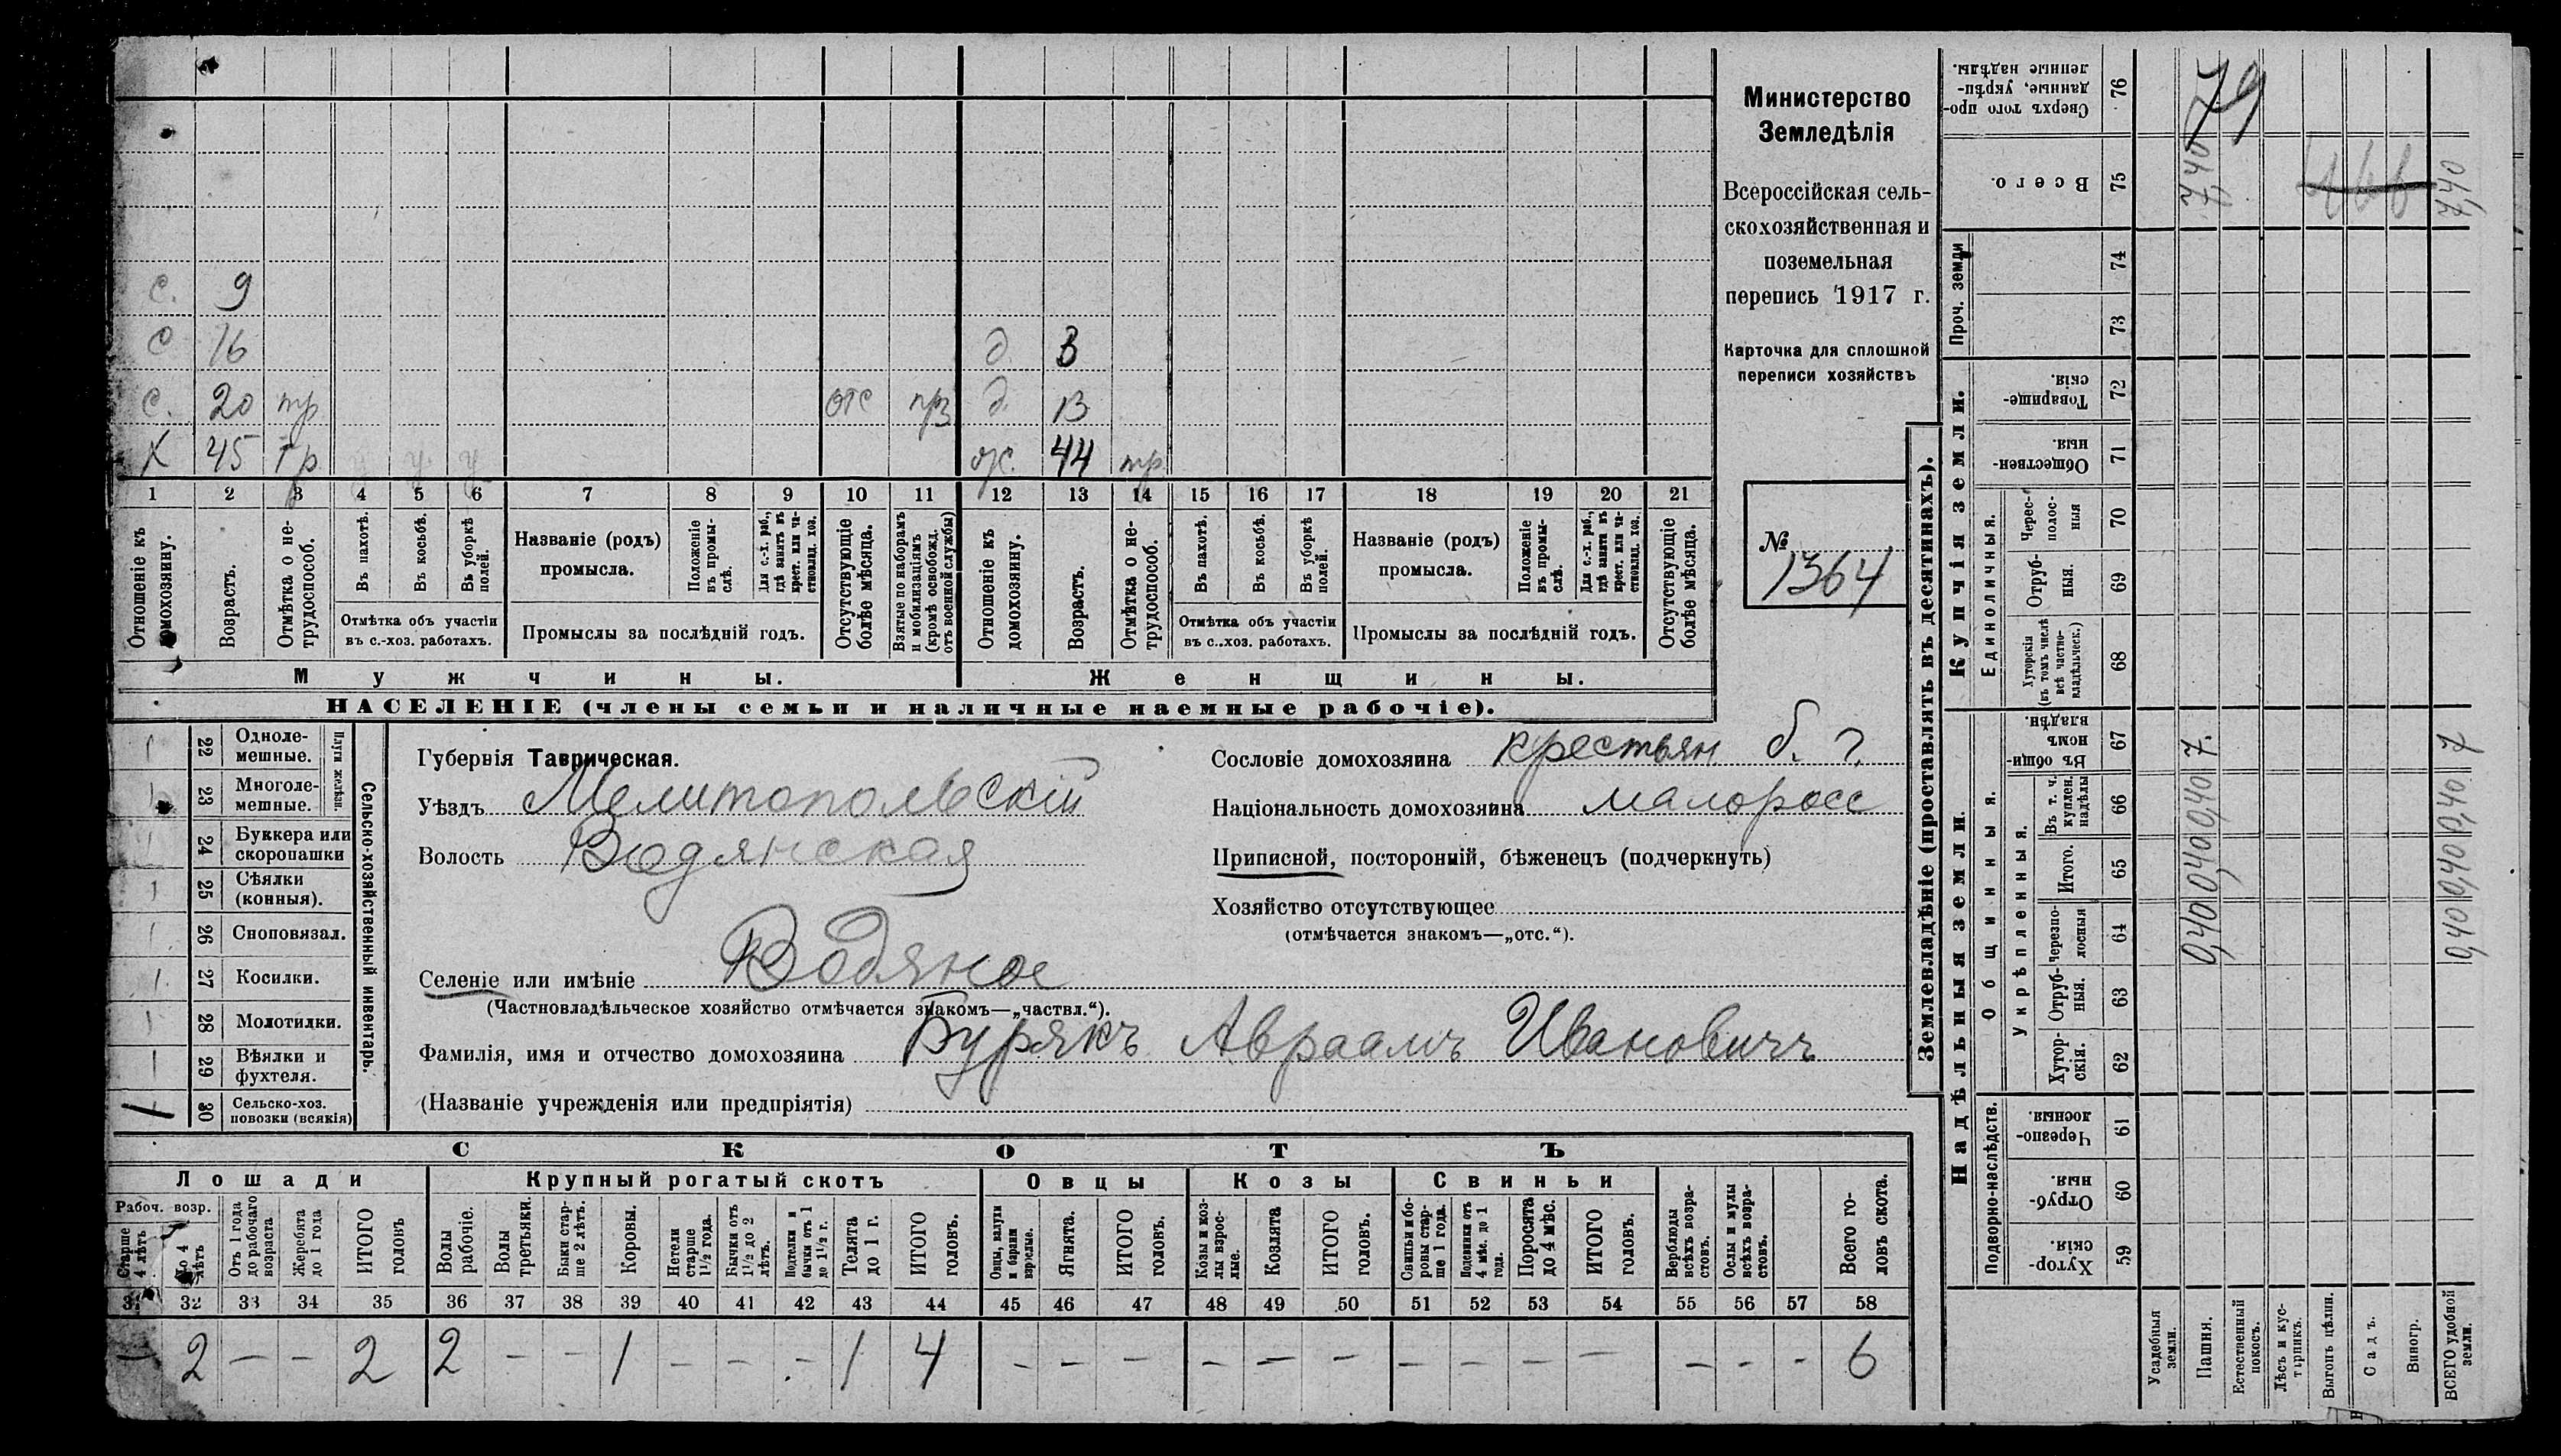 Министерство
Земледѣлія
Всероссійская сель-
скохозяйственная и
поземельная
перепись 1917 г.
Карточка для сплошной
переписи хозяйствъ
№
1364
с. 9
с 16 д. 3
с. 20 тр отс д. 13
Х 45 тр ж. 44 тр
1 2 3 4 5 6 7 8 9 10 11 12 13 14 15 16 17 18 19 20 21
Отношеніе къ домохозяину.
Возрастъ.
Отмѣтка о не-трудоспособ.
Въ пахотѣ.
Въ косьбѣ.
Въ уборкѣ полей.
Отмѣтка объ участіи
въ с.-хоз. работахъ.
Названіе (родъ)
промысла.
Положеніе въ промы-слѣ.
Для с.-х. раб., гдѣ занятъ въ крест. или ча-стновлад. хоз.
Промыслы за послѣдній годъ.
Отсутствующіе болѣе мѣсяца.
Взятые по наборамъ и мобилизаціямъ (кромѣ освобожд. отъ военной службы)
Отношеніе къ домохозяину.
Возрастъ.
Отмѣтка о не-трудоспособ.
Въ пахотѣ.
Въ косьбѣ.
Въ уборкѣ полей.
Отмѣтка объ участіи
въ с.-хоз. работахъ.
Названіе (родъ)
промысла.
Положеніе въ промы-слѣ.
Для с.-х. раб., гдѣ занята въ крест. или ча-стновлад. хоз.
Промыслы за послѣдній годъ.
Отсутствующіе болѣе мѣсяца.
Мужчины.
Женщины.
НАСЕЛЕНІЕ (члены семьи и наличные наемные рабочіе).
Сельско-хозяйственный инвентарь.
Плуги желѣзн.
22 Одноле-мешные.
23 Многоле-мешные.
24 Буккера или скоропашки
25 Сѣялки (конныя).
26 Сноповязал.
27 Косилки.
28 Молотилки.
29 Вѣялки и фухтеля.
30 Сельско-хоз. повозки (всякія)
1
Губернія Таврическая.
Уѣздъ Мелитопольскій
Волость Водянская
Селеніе или имѣніе Водяное
(Частновладѣльческое хозяйство отмѣчается знакомъ—„частвл.“).
Фамилія, имя и отчество домохозяина Бурякъ Авраамъ Ивановичъ
(Названіе учрежденія или предпріятія)
Сословіе домохозяина крестьян б. г.
Національность домохозяина малоросс
Приписной, посторонній, бѣженецъ (подчеркнуть)
Хозяйство отсутствующее
(отмѣчается знакомъ—„отс.“).
СКОТЪ
Лошади
Рабоч. возр.
Старше 4 лѣтъ
До 4 лѣтъ
Отъ 1 года до рабочаго возраста
Жеребята до 1 года
ИТОГО головъ
Крупный рогатый скотъ
Волы рабочіе.
Волы третьяки.
Быки стар-ше 2 лѣтъ.
Коровы.
Нетели старше 1½ года.
Бычки отъ 1½ до 2 лѣтъ.
Подтелки и бычки отъ 1 до 1½ г.
Телята до 1 г.
ИТОГО головъ.
Овцы
Овцы, валухи и бараны взрослые.
Ягнята.
ИТОГО головъ.
Козы
Козы и коз-лы взрос-лые.
Козлята
ИТОГО головъ.
Свиньи
Свиньи и бо-ровы стар-ше 1 года.
Подсвинки отъ 4 мѣс. до 1 года.
Поросята до 4 мѣс.
ИТОГО головъ.
Верблюды всѣхъ возра-стовъ.
Ослы и мулы всѣхъ возра-стовъ.
Всего го-ловъ скота.
31 32 33 34 35 36 37 38 39 40 41 42 43 44 45 46 47 48 49 50 51 52 53 54 55 56 57 58
— 2 — — 2 2 — — 1 — — — 1 4 — — — — — — — — — — — — — 6
Землевладѣніе (проставлять въ десятинахъ).
Надѣльныя земли.
Купчія земли.
Проч. земли
Подворно-наслѣдств.
Общинныя.
Укрѣпленныя.
Единоличныя.
Хутор-скія. 59
Отруб-ныя. 60
Черезпо-лосныя 61
Хутор-скія. 62
Отруб-ныя. 63
Черезпо-лосныя 64
Итого. 65
Въ т. ч. куплен. надѣлы 66
Въ общин-номъ владѣн. 67
Хуторскія (въ томъ числѣ всѣ частно-владѣльческ.) 68
Отруб-ныя. 69
Черес-полос-ныя 70
Обществен-ныя. 71
Товарище-скія. 72
73
74
Всего. 75
Сверхъ того про-данные, укрѣп-ленные надѣлы. 76
Усадебныя земли.
Пашня. 0,40 0,40 0,40 7. 7,40
Естественный покосъ.
Лѣсъ и кус-тарникъ.
Выгонъ цѣлин.
Садъ.
Виногр.
ВСЕГО удобной земли. 0,40 0,40 0,40 7 7,40
79